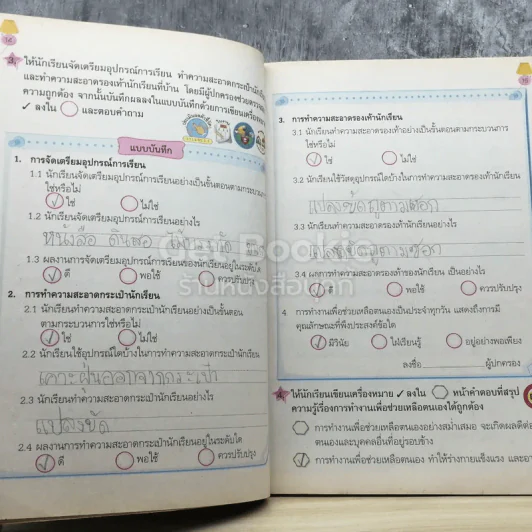 3. ให้นักเรียนจัดเตรียมอุปกรณ์การเรียน ทำความสะอาดกระเป๋านักเรียน
และทำความสะอาดรองเท้านักเรียนที่บ้าน โดยมีผู้ปกครองช่วยตรวจสอบ
ความถูกต้อง จากนั้นบันทึกผลลงในแบบบันทึกด้วยการเขียนเครื่องหมาย
✓ ลงใน ○ และตอบคำถาม
แบบบันทึก
1. การจัดเตรียมอุปกรณ์การเรียน
1.1 นักเรียนจัดเตรียมอุปกรณ์การเรียนอย่างเป็นขั้นตอนตามกระบวนการ
ใช่หรือไม่
✓ ใช่ ไม่ใช่
1.2 นักเรียนจัดเตรียมอุปกรณ์การเรียนอย่างไร
หนังสือ ดินสอ
1.3 ผลงานการจัดเตรียมอุปกรณ์การเรียนของนักเรียนอยู่ในระดับใด
✓ ดี พอใช้ ควรปรับปรุง
2. การทำความสะอาดกระเป๋านักเรียน
2.1 นักเรียนทำความสะอาดกระเป๋านักเรียนอย่างเป็นขั้นตอน
ตามกระบวนการใช่หรือไม่
✓ ใช่ ไม่ใช่
2.2 นักเรียนใช้อุปกรณ์ใดบ้างในการทำความสะอาดกระเป๋านักเรียน
เคาะฝุ่นออกจากกระเป๋า
2.3 นักเรียนทำความสะอาดกระเป๋านักเรียนอย่างไร
แปลงขัด
2.4 ผลงานการทำความสะอาดกระเป๋านักเรียนอยู่ในระดับใด
✓ ดี พอใช้ ควรปรับปรุง
3. การทำความสะอาดรองเท้านักเรียน
3.1 นักเรียนทำความสะอาดรองเท้าอย่างเป็นขั้นตอนตามกระบวนการ
ใช่หรือไม่
✓ ใช่ ไม่ใช่
3.2 นักเรียนใช้วัสดุอุปกรณ์ใดบ้างในการทำความสะอาดรองเท้านักเรียน
3.3 นักเรียนทำความสะอาดรองเท้านักเรียนอย่างไร
3.4 ผลการทำความสะอาดรองเท้าของนักเรียน เป็นอย่างไร
✓ ดี พอใช้ ควรปรับปรุง
4 การทำงานเพื่อช่วยเหลือตนเองเป็นประจำทุกวัน แสดงถึงการมี
คุณลักษณะที่พึงประสงค์ข้อใด
✓ มีวินัย ใฝ่เรียนรู้ อยู่อย่างพอเพียง
ลงชื่อ ผู้ปกครอง
4. ให้นักเรียนเขียนเครื่องหมาย ✓ ลงใน หน้าคำตอบที่สรุป
ความรู้เรื่องการทำงานเพื่อช่วยเหลือตนเองได้ถูกต้อง
การทำงานเพื่อช่วยเหลือตนเองอย่างสม่ำเสมอ จะเกิดผลดีต่อ
ตนเองและบุคคลอื่นที่อยู่รอบข้าง
✓ การทำงานเพื่อช่วยเหลือตนเอง ทำให้ร่างกายแข็งแรง
Get Bookie
ร้านหนังสือเก็ท